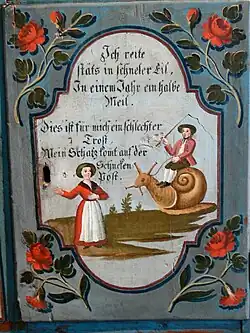 Ich reite
stäts in schneler Eil,
In einem Jahr ein halbe
Meil.
Dies ist für mich ein schlechter
Trost
Mein Schatz komt auf der
Schnelen
Post.